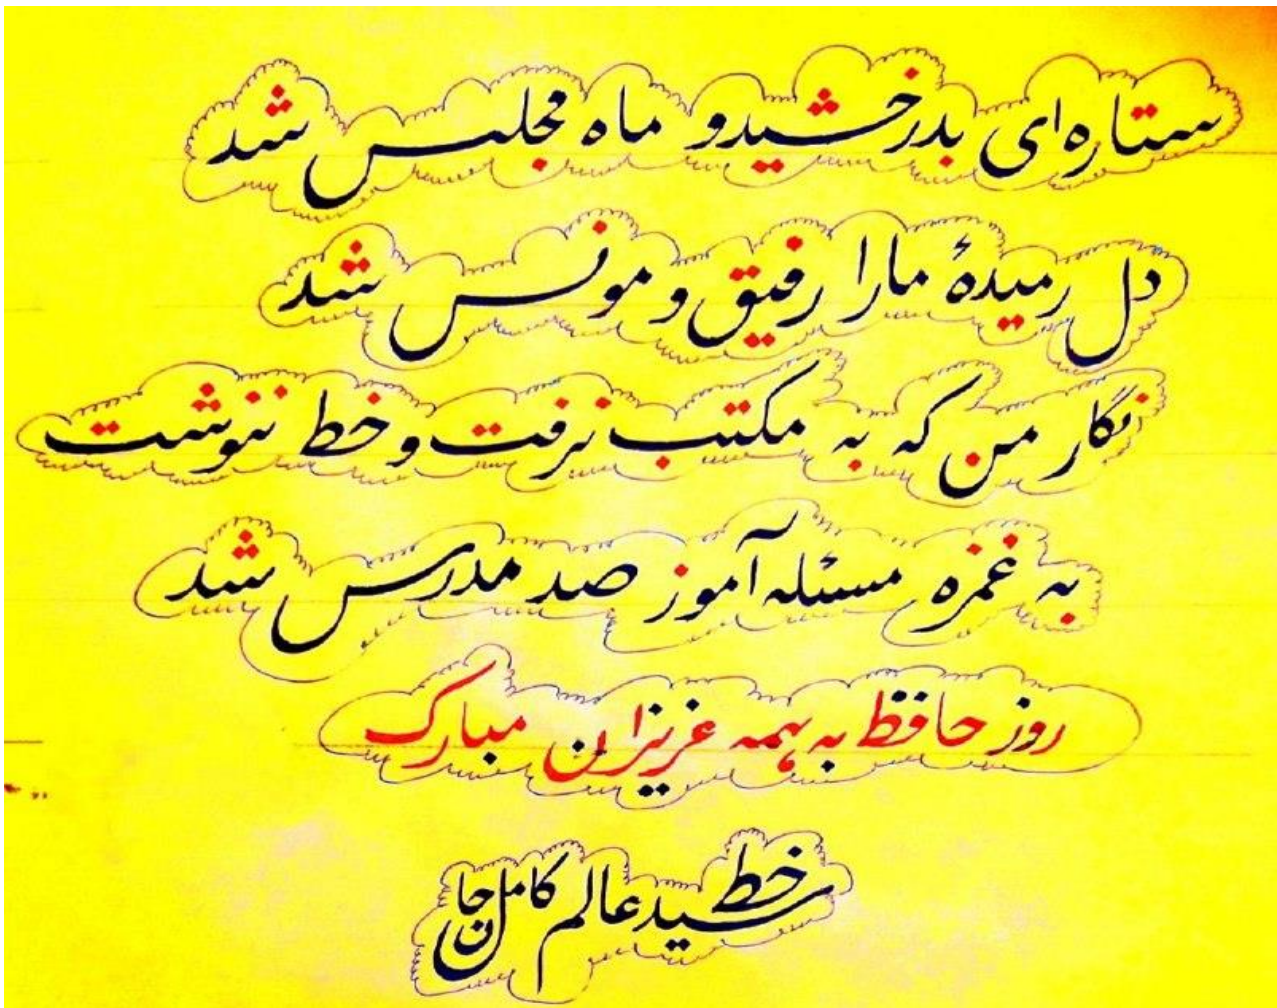 ستاره‌ای بدرخشید و ماه مجلس شد
دل رمیدهٔ ما را رفیق و مونس شد
نگار من که به مکتب نرفت و خط ننوشت
به غمزه مسئله آموز صد مدرس شد
روز حافظ به همه عزیزان مبارک
خط سید عالم کامل جان